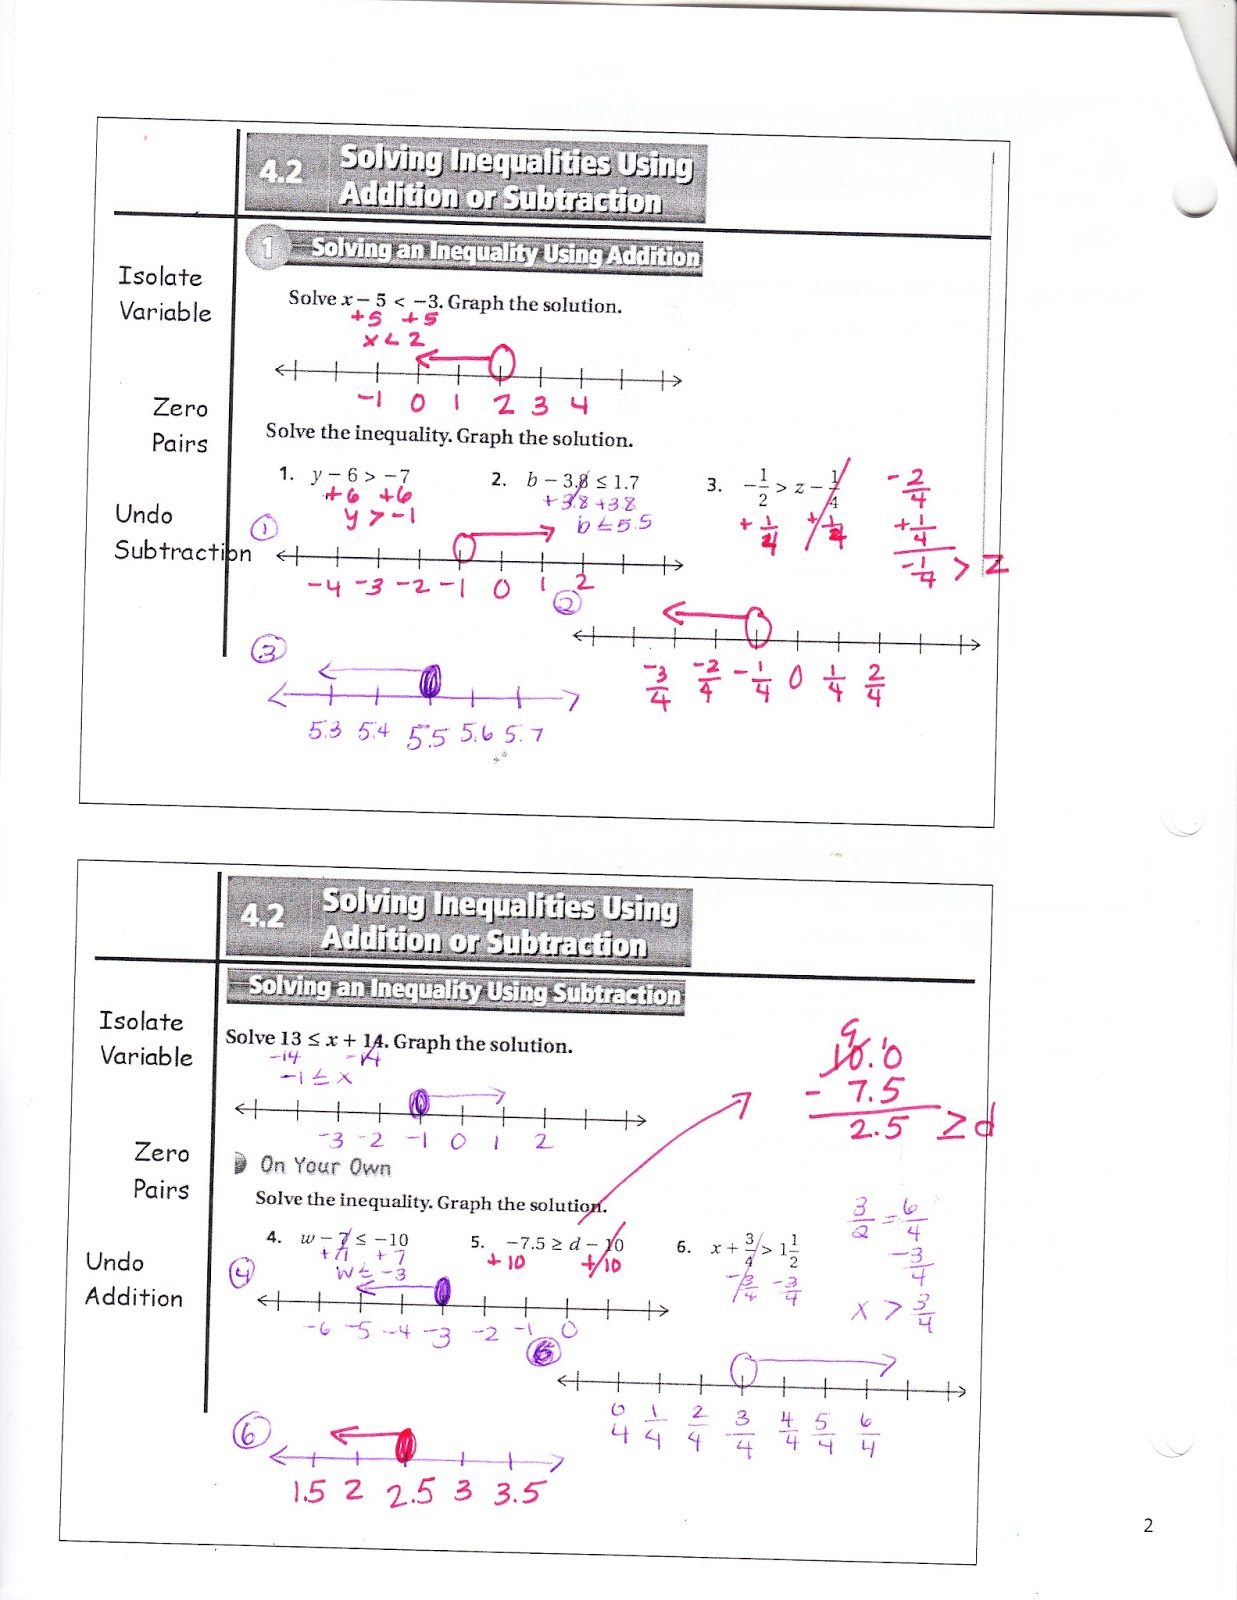 4.2 Solving Inequalities Using
Addition or Subtraction
1 Solving an Inequality Using Addition
Isolate
Variable
Solve x – 5 < –3. Graph the solution.
+5 +5
x < 2
-1 0 1 2 3 4
Zero
Pairs
Solve the inequality. Graph the solution.
1. y – 6 > –7
+6 +6
y > -1
2. b – 3.8 ≤ 1.7
+3.8 +3.8
b ≤ 5.5
3. –1/2 > z – 1/4
+1/4 +1/4
-2/4
+1/4
-1/4 > z
Undo
Subtraction
①
-4 -3 -2 -1 0 1 2
②
-3/4 -2/4 -1/4 0 1/4 2/4
③
5.3 5.4 5.5 5.6 5.7
4.2 Solving Inequalities Using
Addition or Subtraction
Solving an Inequality Using Subtraction
Isolate
Variable
Solve 13 ≤ x + 14. Graph the solution.
-14 -14
-1 ≤ x
-3 -2 -1 0 1 2
9
10.10
- 7.5
2.5 ≥ d
Zero
Pairs
On Your Own
Solve the inequality. Graph the solution.
4. w – 7 ≤ –10
+7 +7
w ≤ -3
5. –7.5 ≥ d – 10
+10 +10
6. x + 3/4 > 1 1/2
-3/4 -3/4
3/2 = 6/4
-3/4
x > 3/4
Undo
Addition
④
-6 -5 -4 -3 -2 -1 0
0/4 1/4 2/4 3/4 4/4 5/4 6/4
⑥
1.5 2 2.5 3 3.5
2